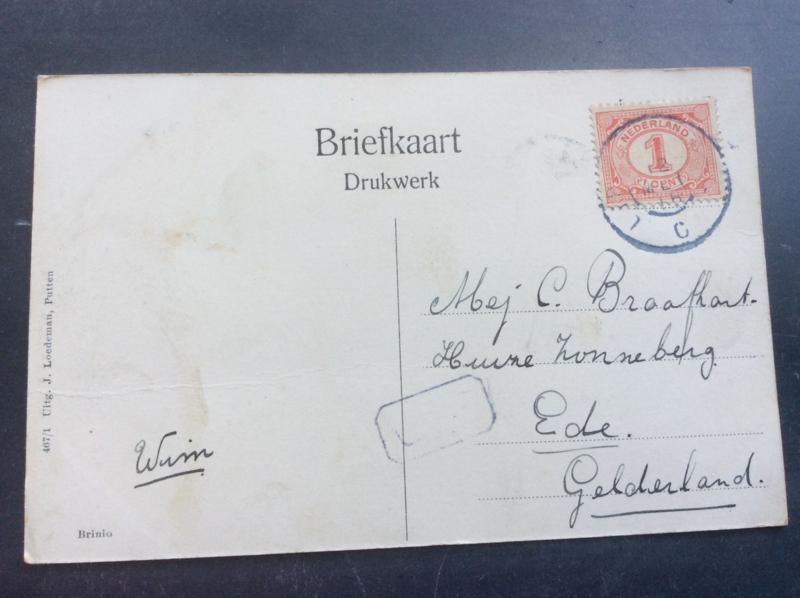 Briefkaart
Drukwerk
NEDERLAND
1
CENT
C
Mej C. Braafhart.
Huize Zonneberg
Ede.
Gelderland.
Wim
467/1 Uitg. J. Loedeman, Putten
Brinio